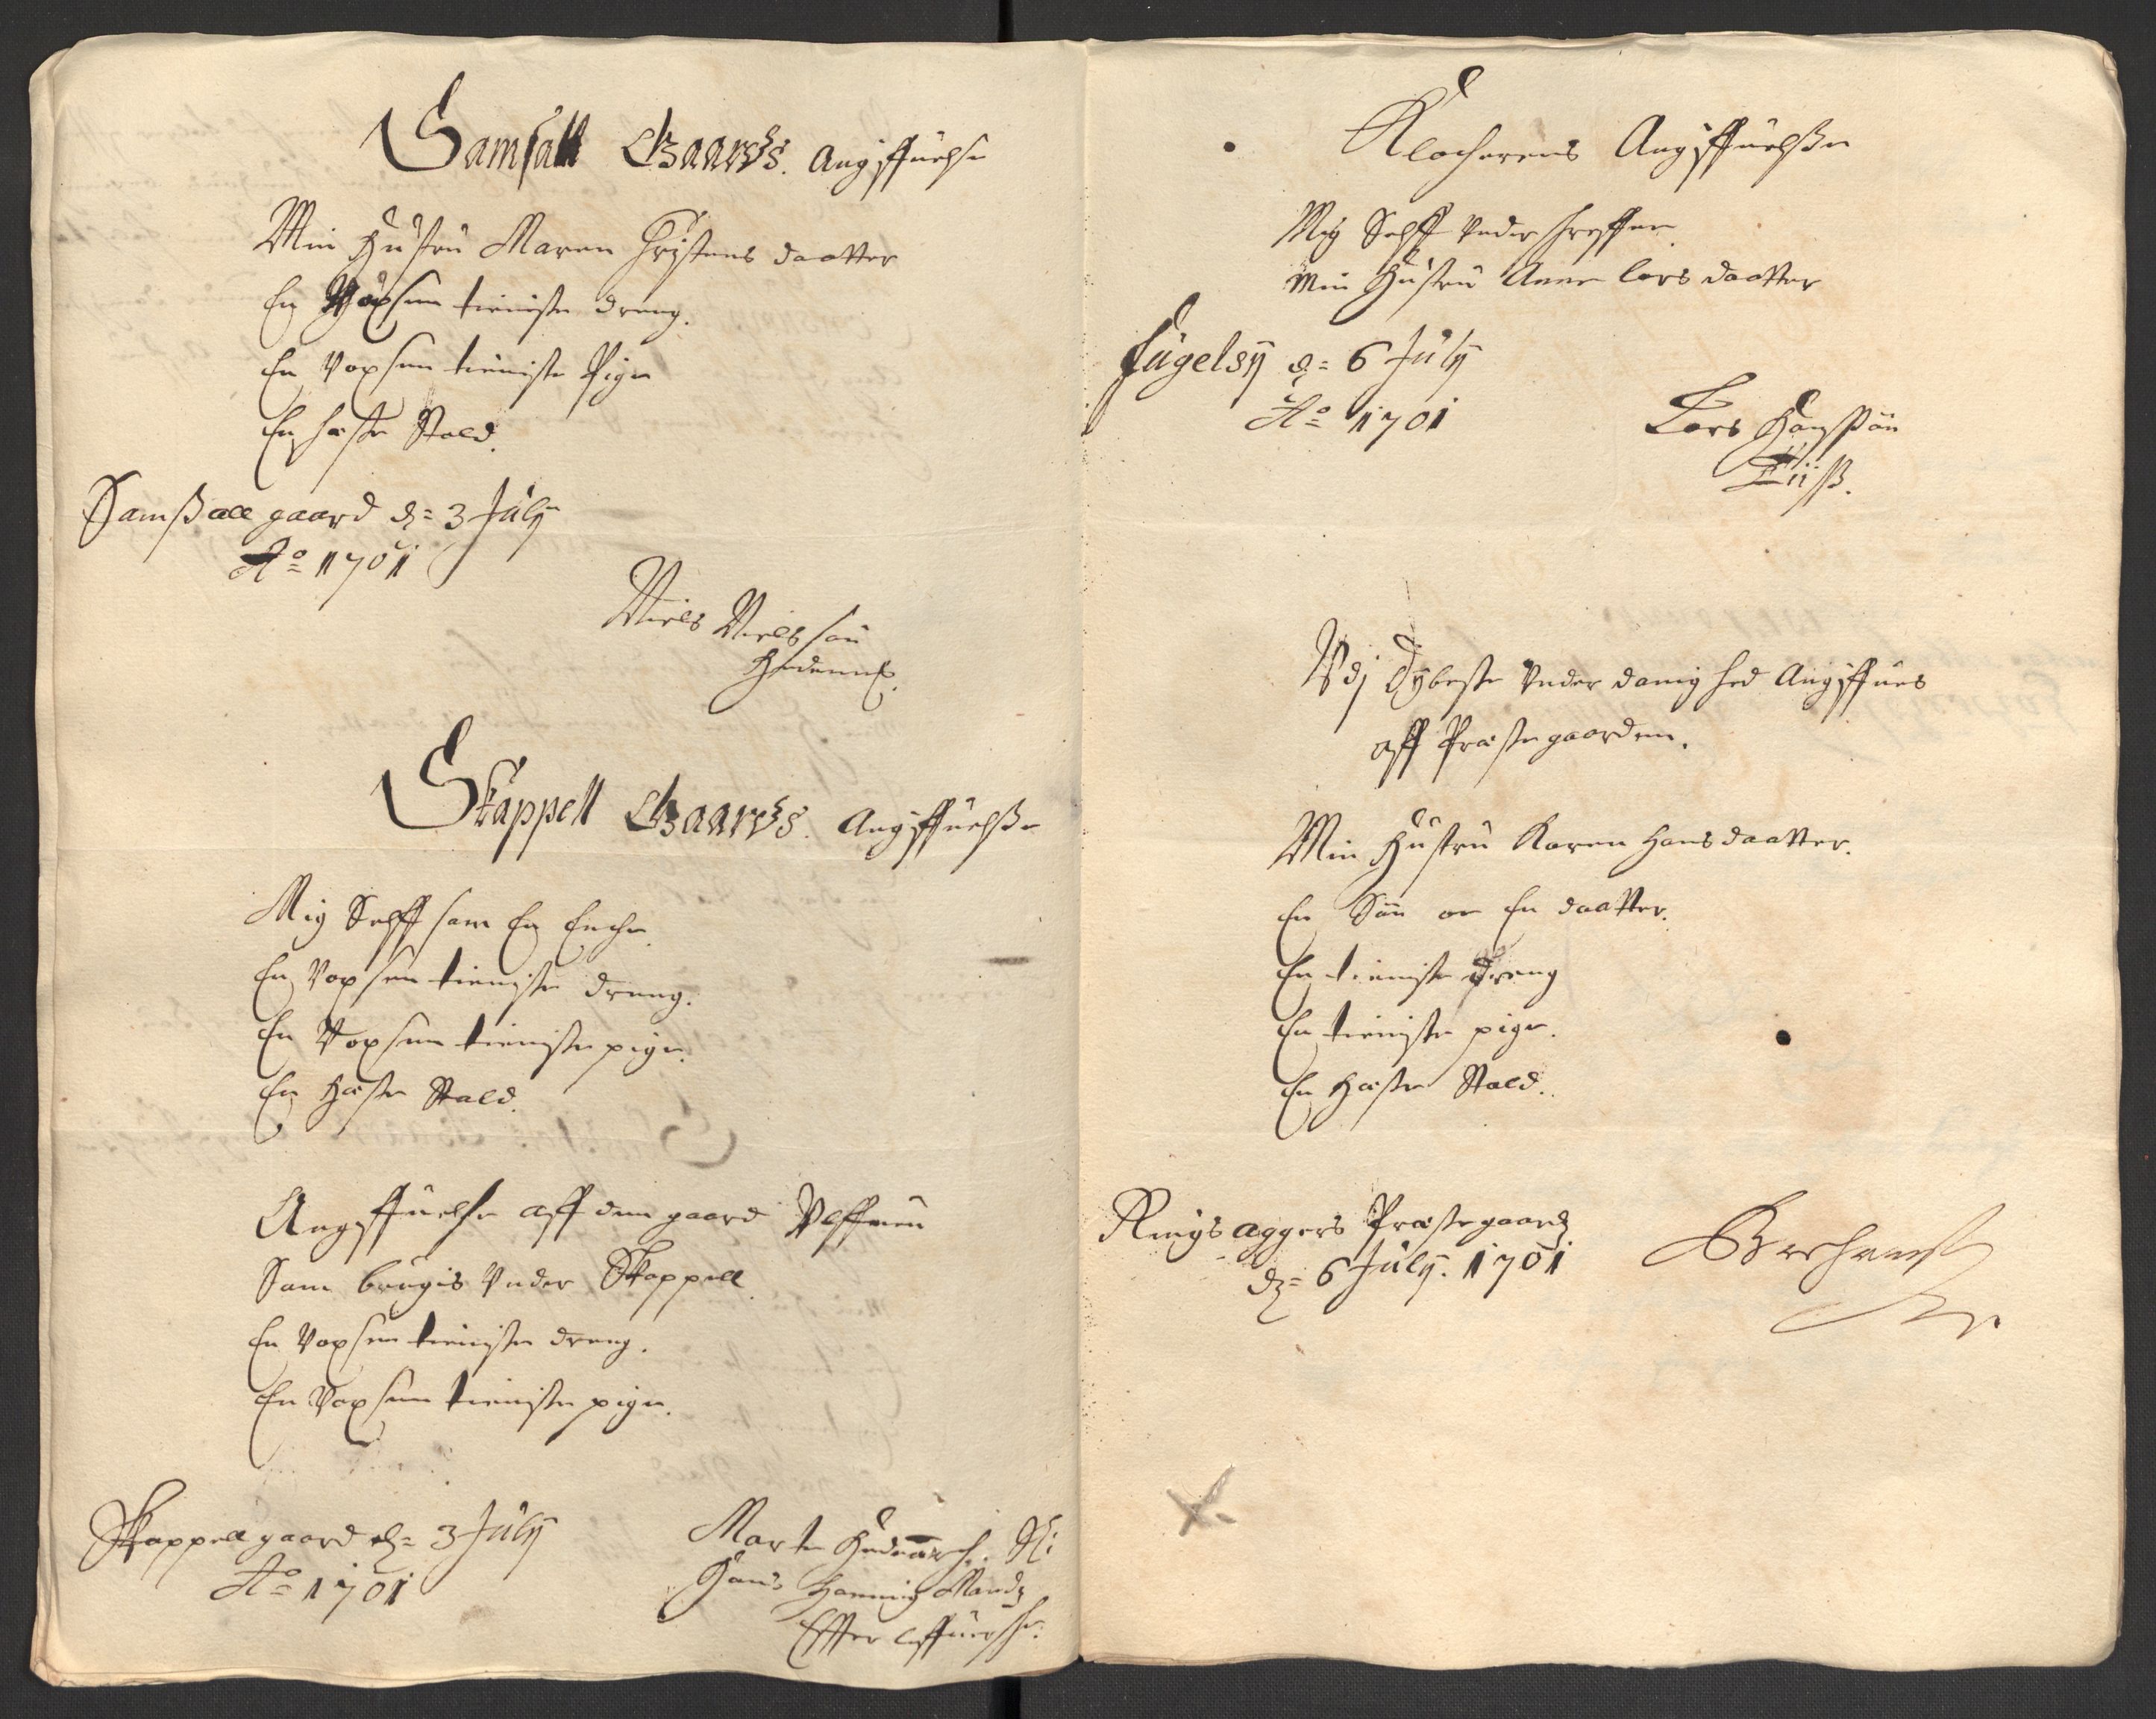 Samsall Gaards. Angiffuelse
Min Hustru Maren Christens daatter
En Voxsen tieniste dreng.
En Voxsen tieniste Pige
En heste Stald.
Samsßall gaard d: 3 July
Ao 1701
Niels Nielssøn
Skappell Gaards. Angiffuelße
Mig Selff som En Encke.
En Voxsen tieniste dreng.
En Voxsen tieniste pige.
En Heste Stald.
Angiffuelse aff den gaard Ulffuen
Som brugis Under Skappell.
En Voxsen tieniste dreng.
En Voxsen tieniste pige.
Skappell gaard d: 3 July
Ao 1701
Marte
Hans Henning
Effter leffuerske.
Klocherens Angiffuelße
Mig Selff Under schreffuen
Min Hustru Anne Lars daatter
Fugelsÿ d: 6 Julÿ
Ao 1701
Lars Hansßøn
Udj Dybeste Under danighed Angiffues
aff Præstegaarden.
Min Hustru Karen Hans daatter.
En Søn oc En daatter.
En tieniste Dreng
En tieniste pige.
En Heste Stald.
Rings aggers Præstegaard
d: 6 Julÿ. 1701